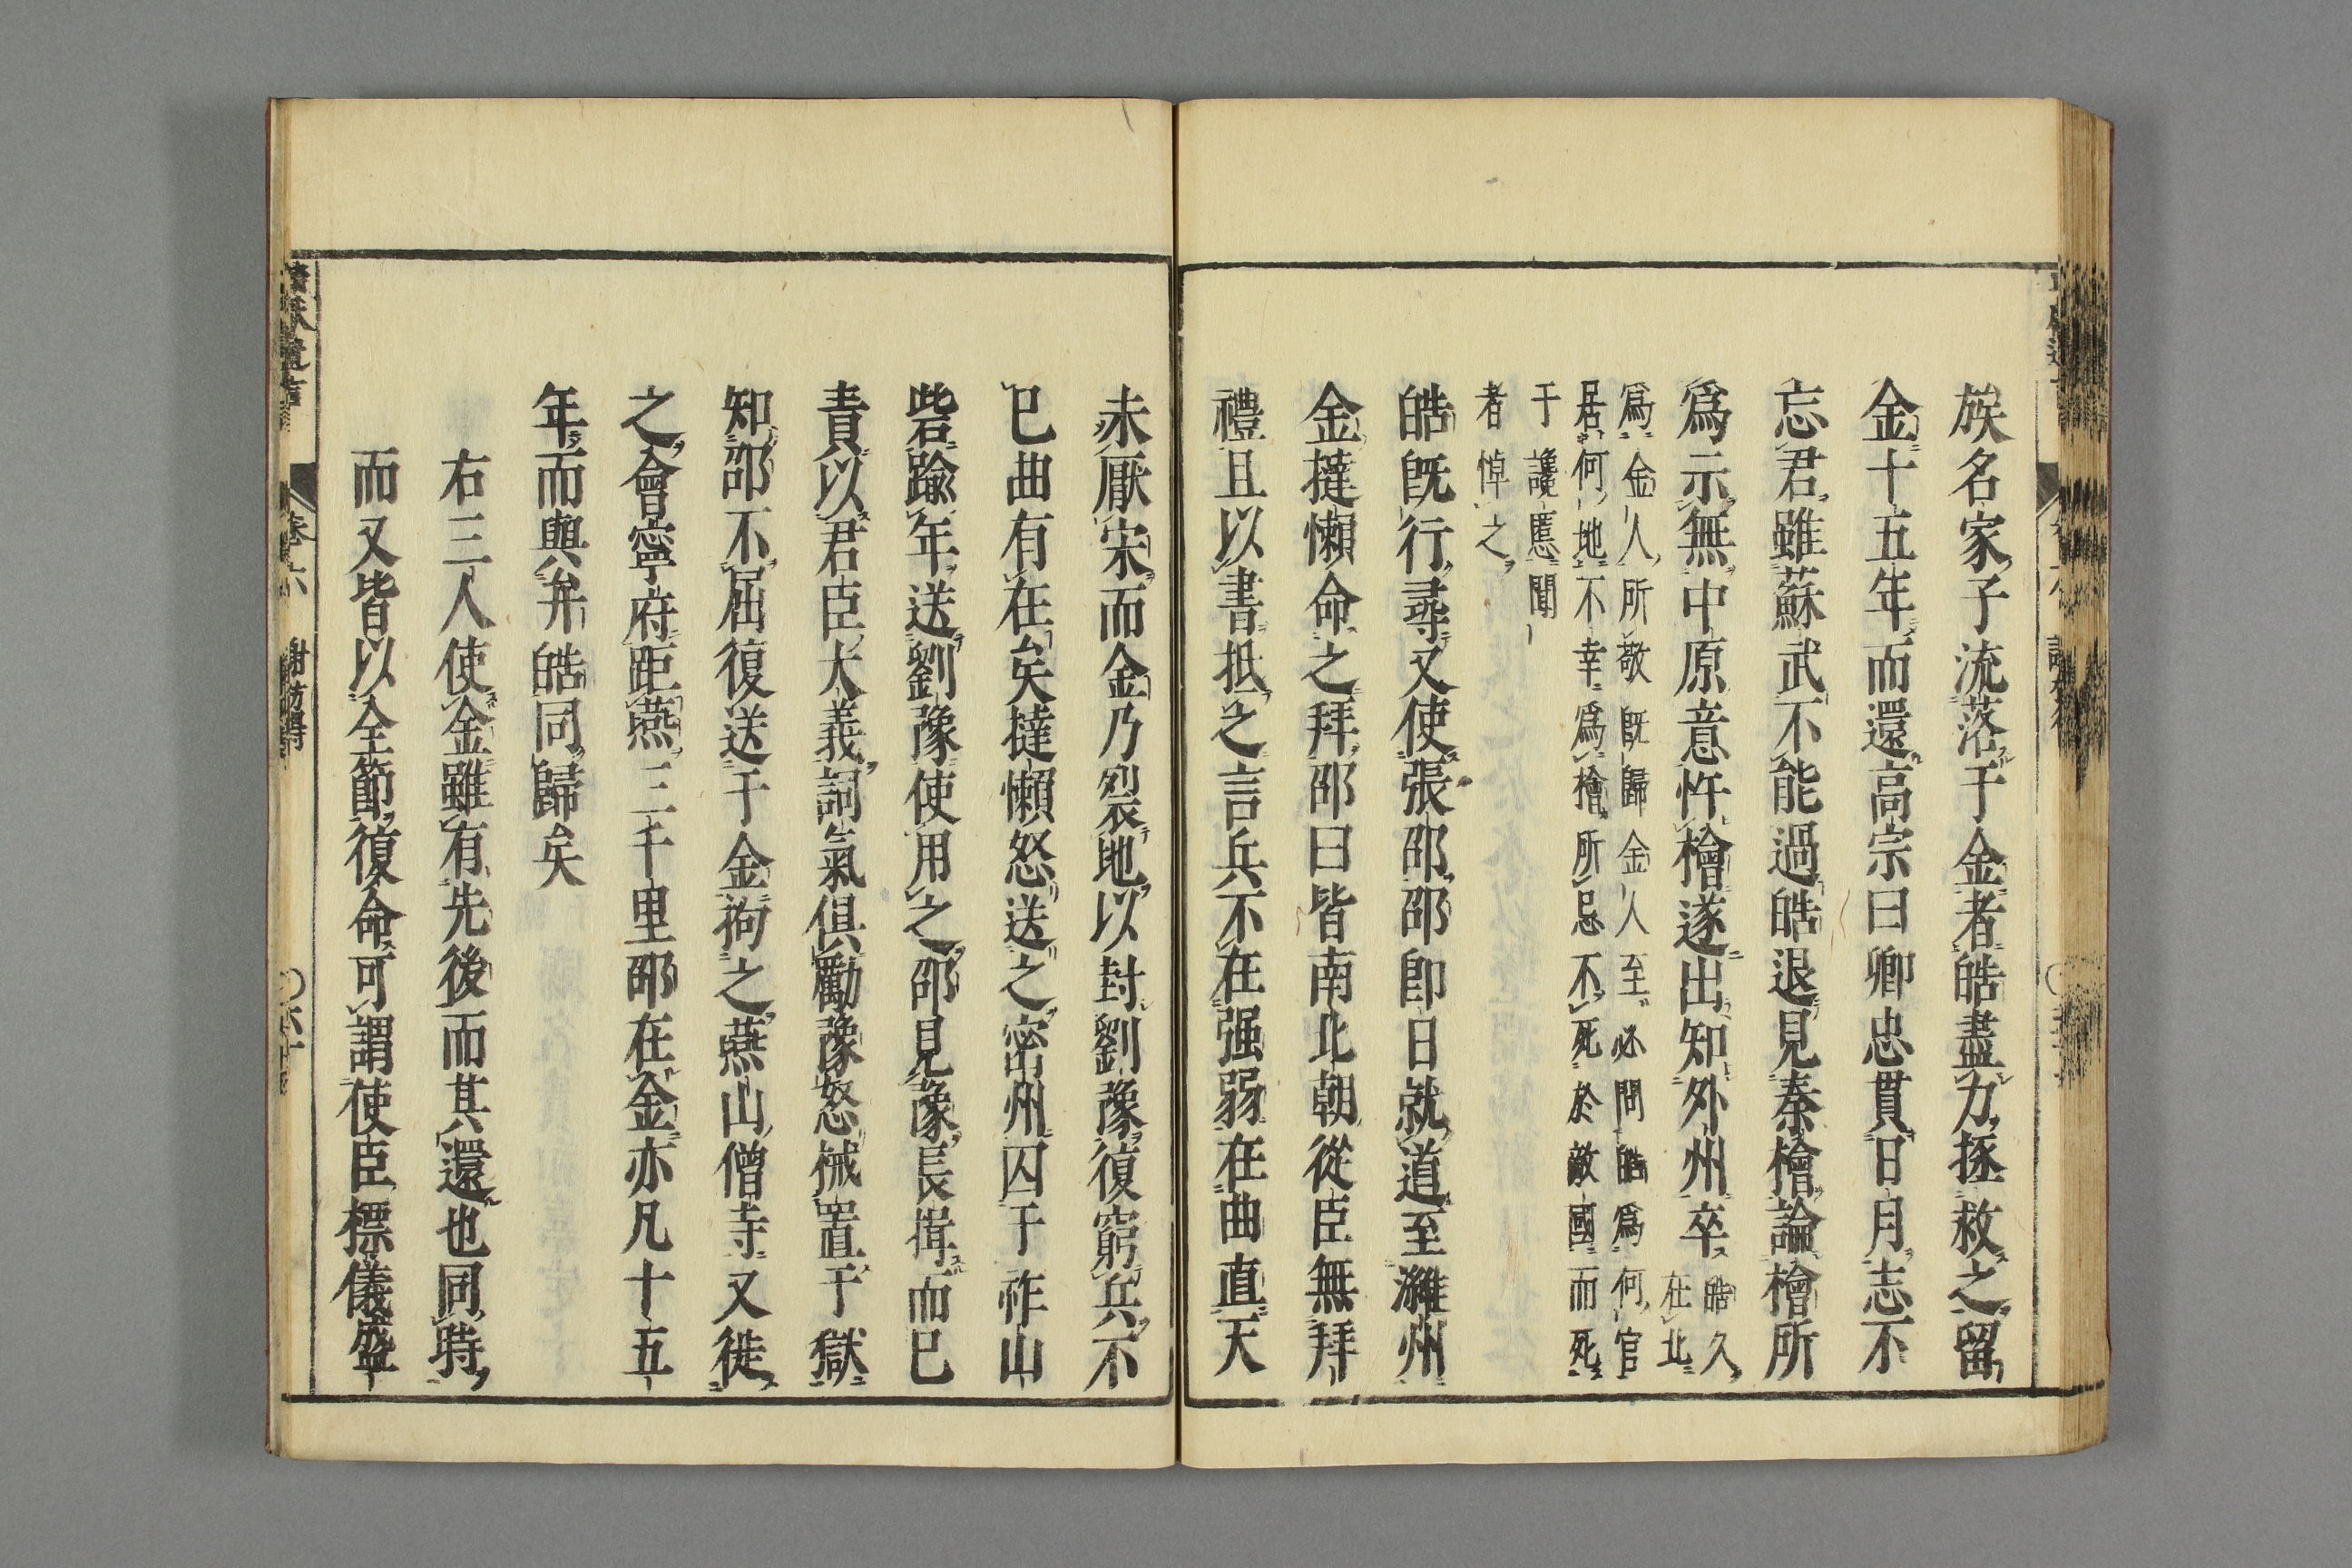 族名家子流落于金者皓盡力拯救之留
金十五年而還高宗曰卿忠貫日月志不
忘君雖蘇武不能過皓退見秦檜論檜所
爲示無中原意忤檜遂出知外州卒皓久
在北
爲金人所敬既歸金人至必問皓爲何官
居何地不幸爲檜所忌不死於敵國而死
于讒慝聞
者悼之
皓既行尋又使張邵邵卽日就道至濰州
金撻懶命之拜邵曰皆南北朝從臣無拜
禮且以書抵之言兵不在强弱在曲直天
未厭宋而金乃裂地以封劉豫復窮兵不
已曲有在矣撻懶怒送之密州囚于祚山
砦踰年送劉豫使用之邵見豫長揖而已
責以君臣大義詞氣俱勵豫怒械置于獄
知邵不屈復送于金拘之燕山僧寺又徙
之會寧府距燕三千里邵在金亦凡十五
年而與弁皓同歸矣
右三人使金雖有先後而其還也同時
而又皆以全節復命可謂使臣標儀盛
靖獻遺言
卷六
謝枋得
〇六十